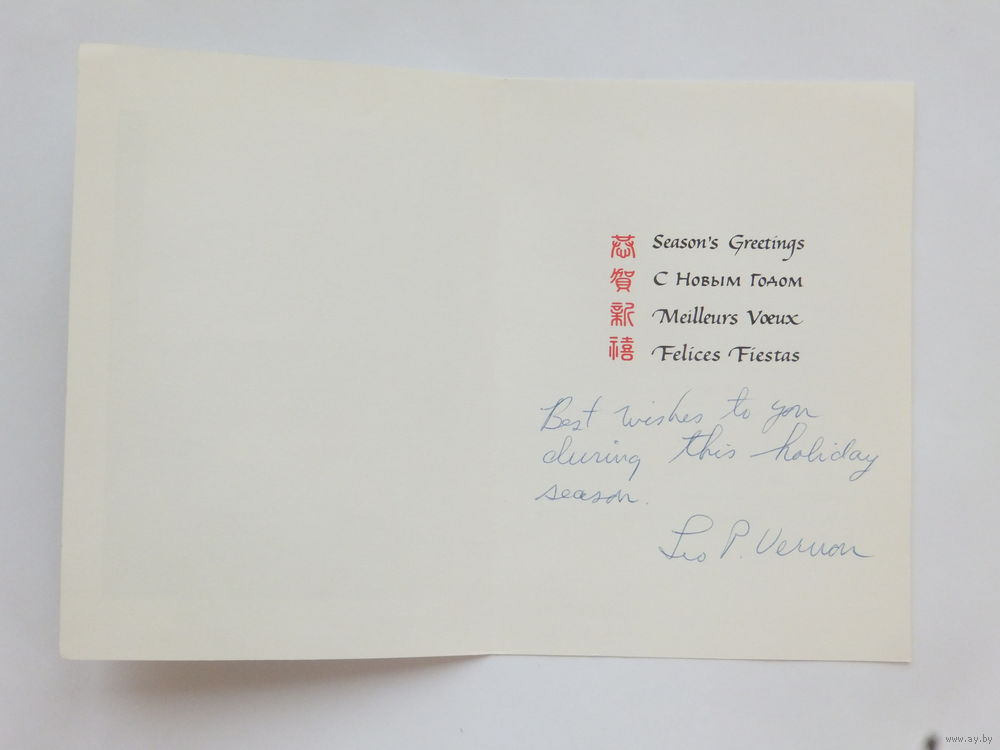 恭賀新禧
Season's Greetings
С Новым Годом
Meilleurs Vœux
Felices Fiestas
Best wishes to you
during this holiday
season.
Leo P. Vernon
www.ay.by